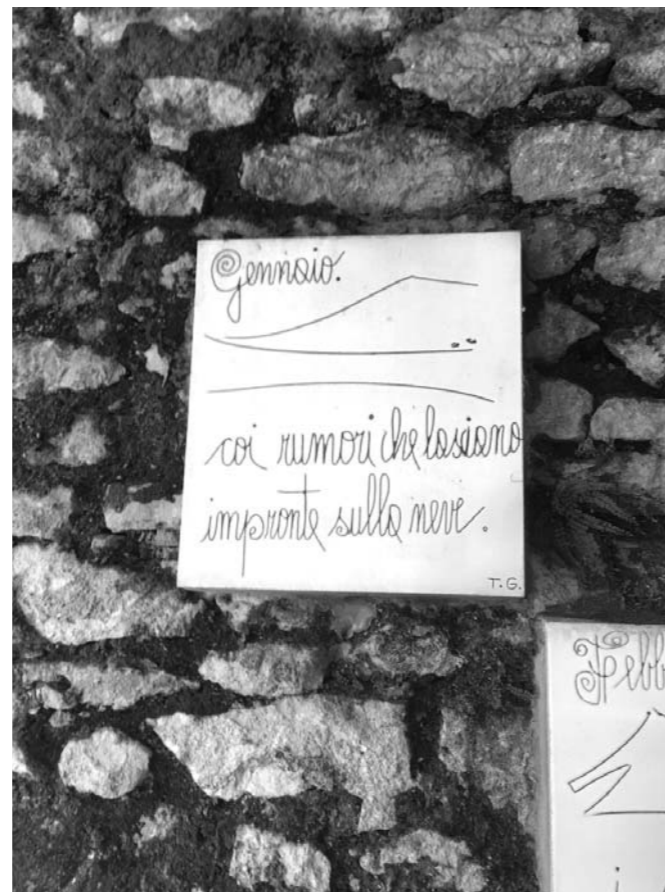 Gennaio.
coi rumori che lasciano
impronte sulla neve.
T.G.
Febb